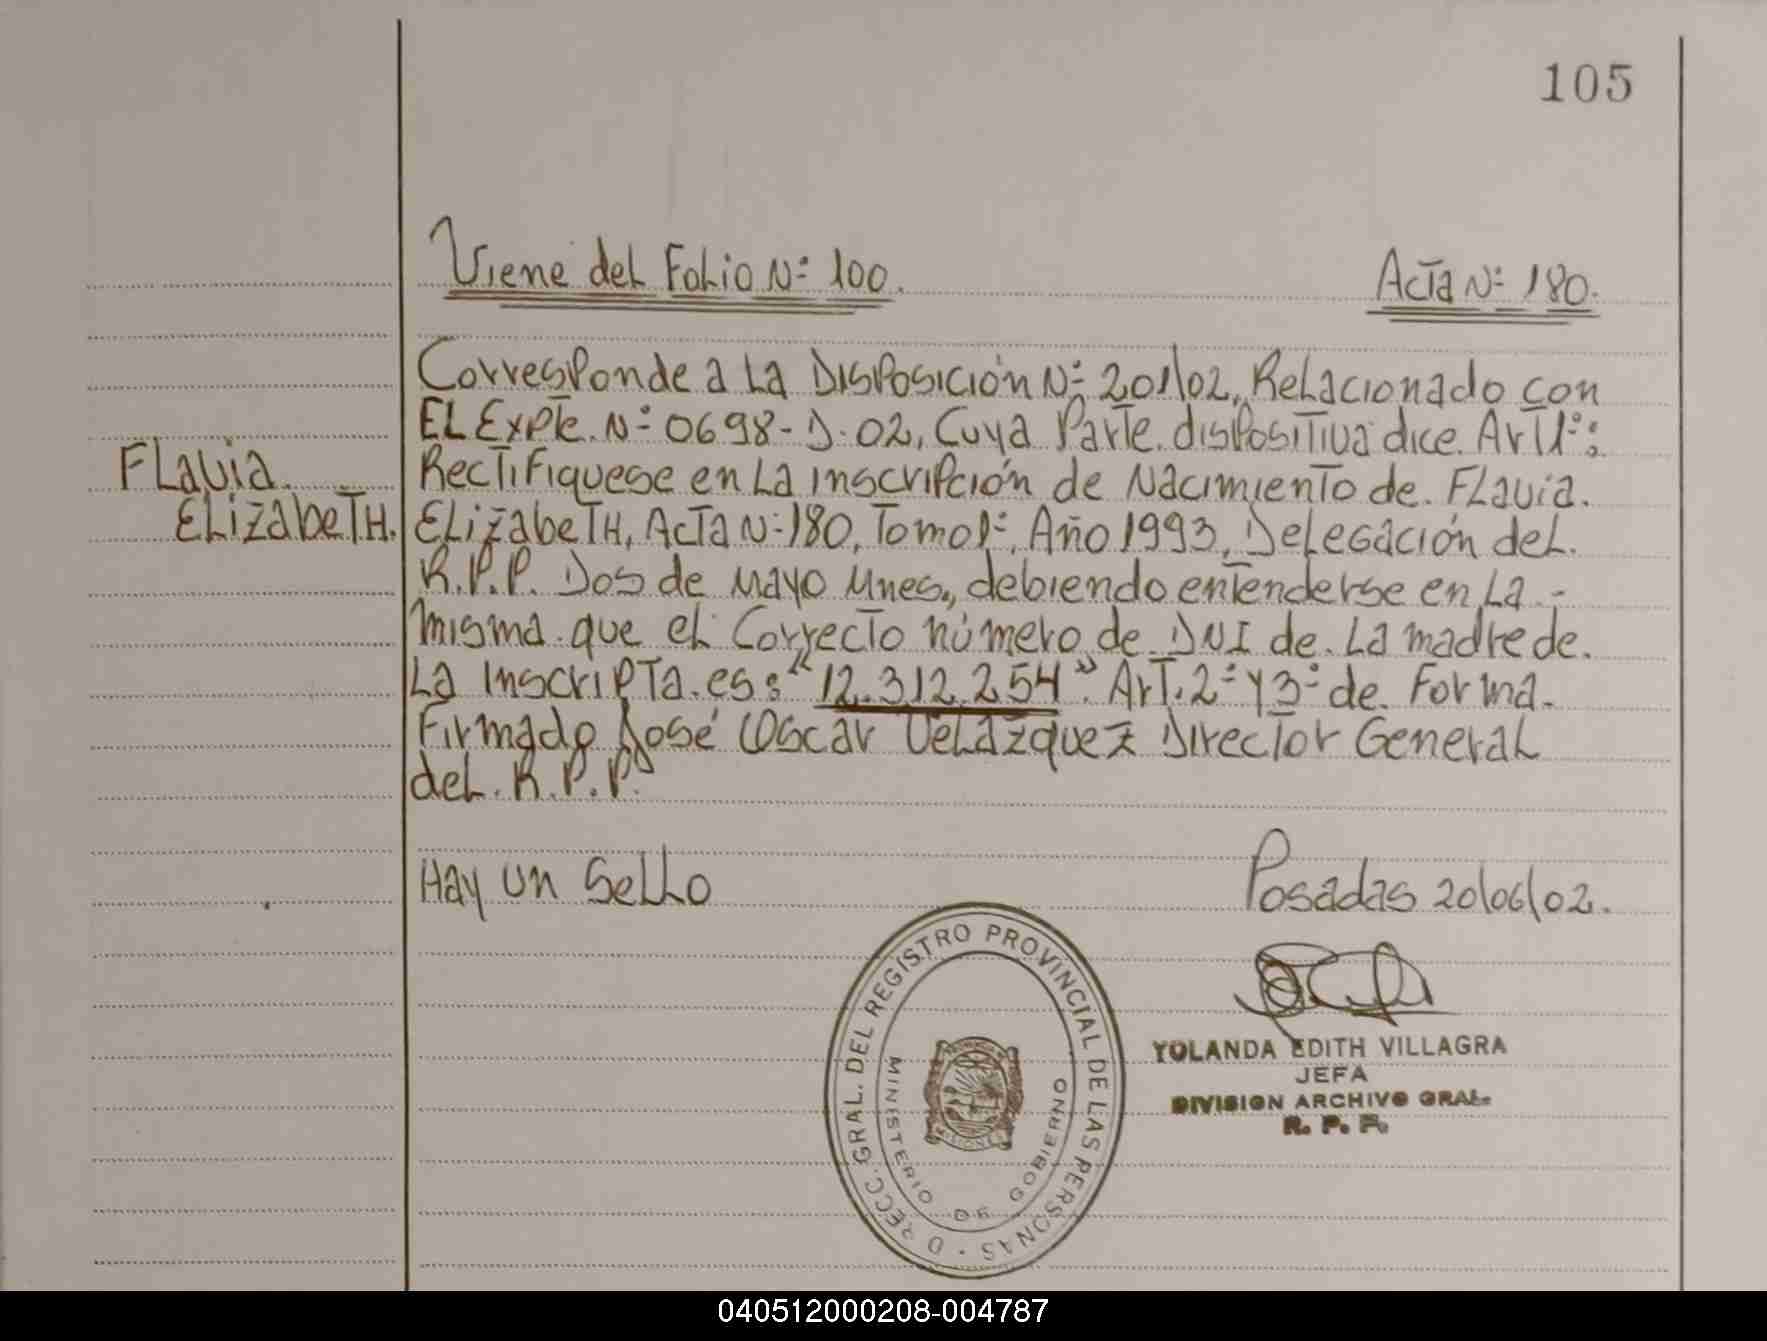 105
Viene del Folio Nº 100. Acta Nº 180.
Corresponde a La Disposición Nº 201/02, Relacionado con
EL Expte. Nº 0698-D-02, Cuya Parte dispositiva dice. Art 1º:
Flavia Rectifiquese en La inscripción de Nacimiento de. Flavia.
Elizabeth. Elizabeth, Acta Nº 180, Tomo 1º, Año 1993, Delegación del.
R.P.P. Dos de Mayo Mnes., debiendo entenderse en La.-
misma que el Correcto número de DNI de. La madre de.
La Inscripta es: "12.312.254". Art. 2º y 3º de. Forma.
Firmado José Oscar Velázquez Director General
del. R.P.P.
Hay un Sello Posadas 20/06/02.
DIRECC. GRAL. DEL REGISTRO PROVINCIAL DE LAS PERSONAS
MINISTERIO DE GOBIERNO
MISIONES
YOLANDA EDITH VILLAGRA
JEFA
DIVISION ARCHIVO GRAL.
R. P. P.
040512000208-004787